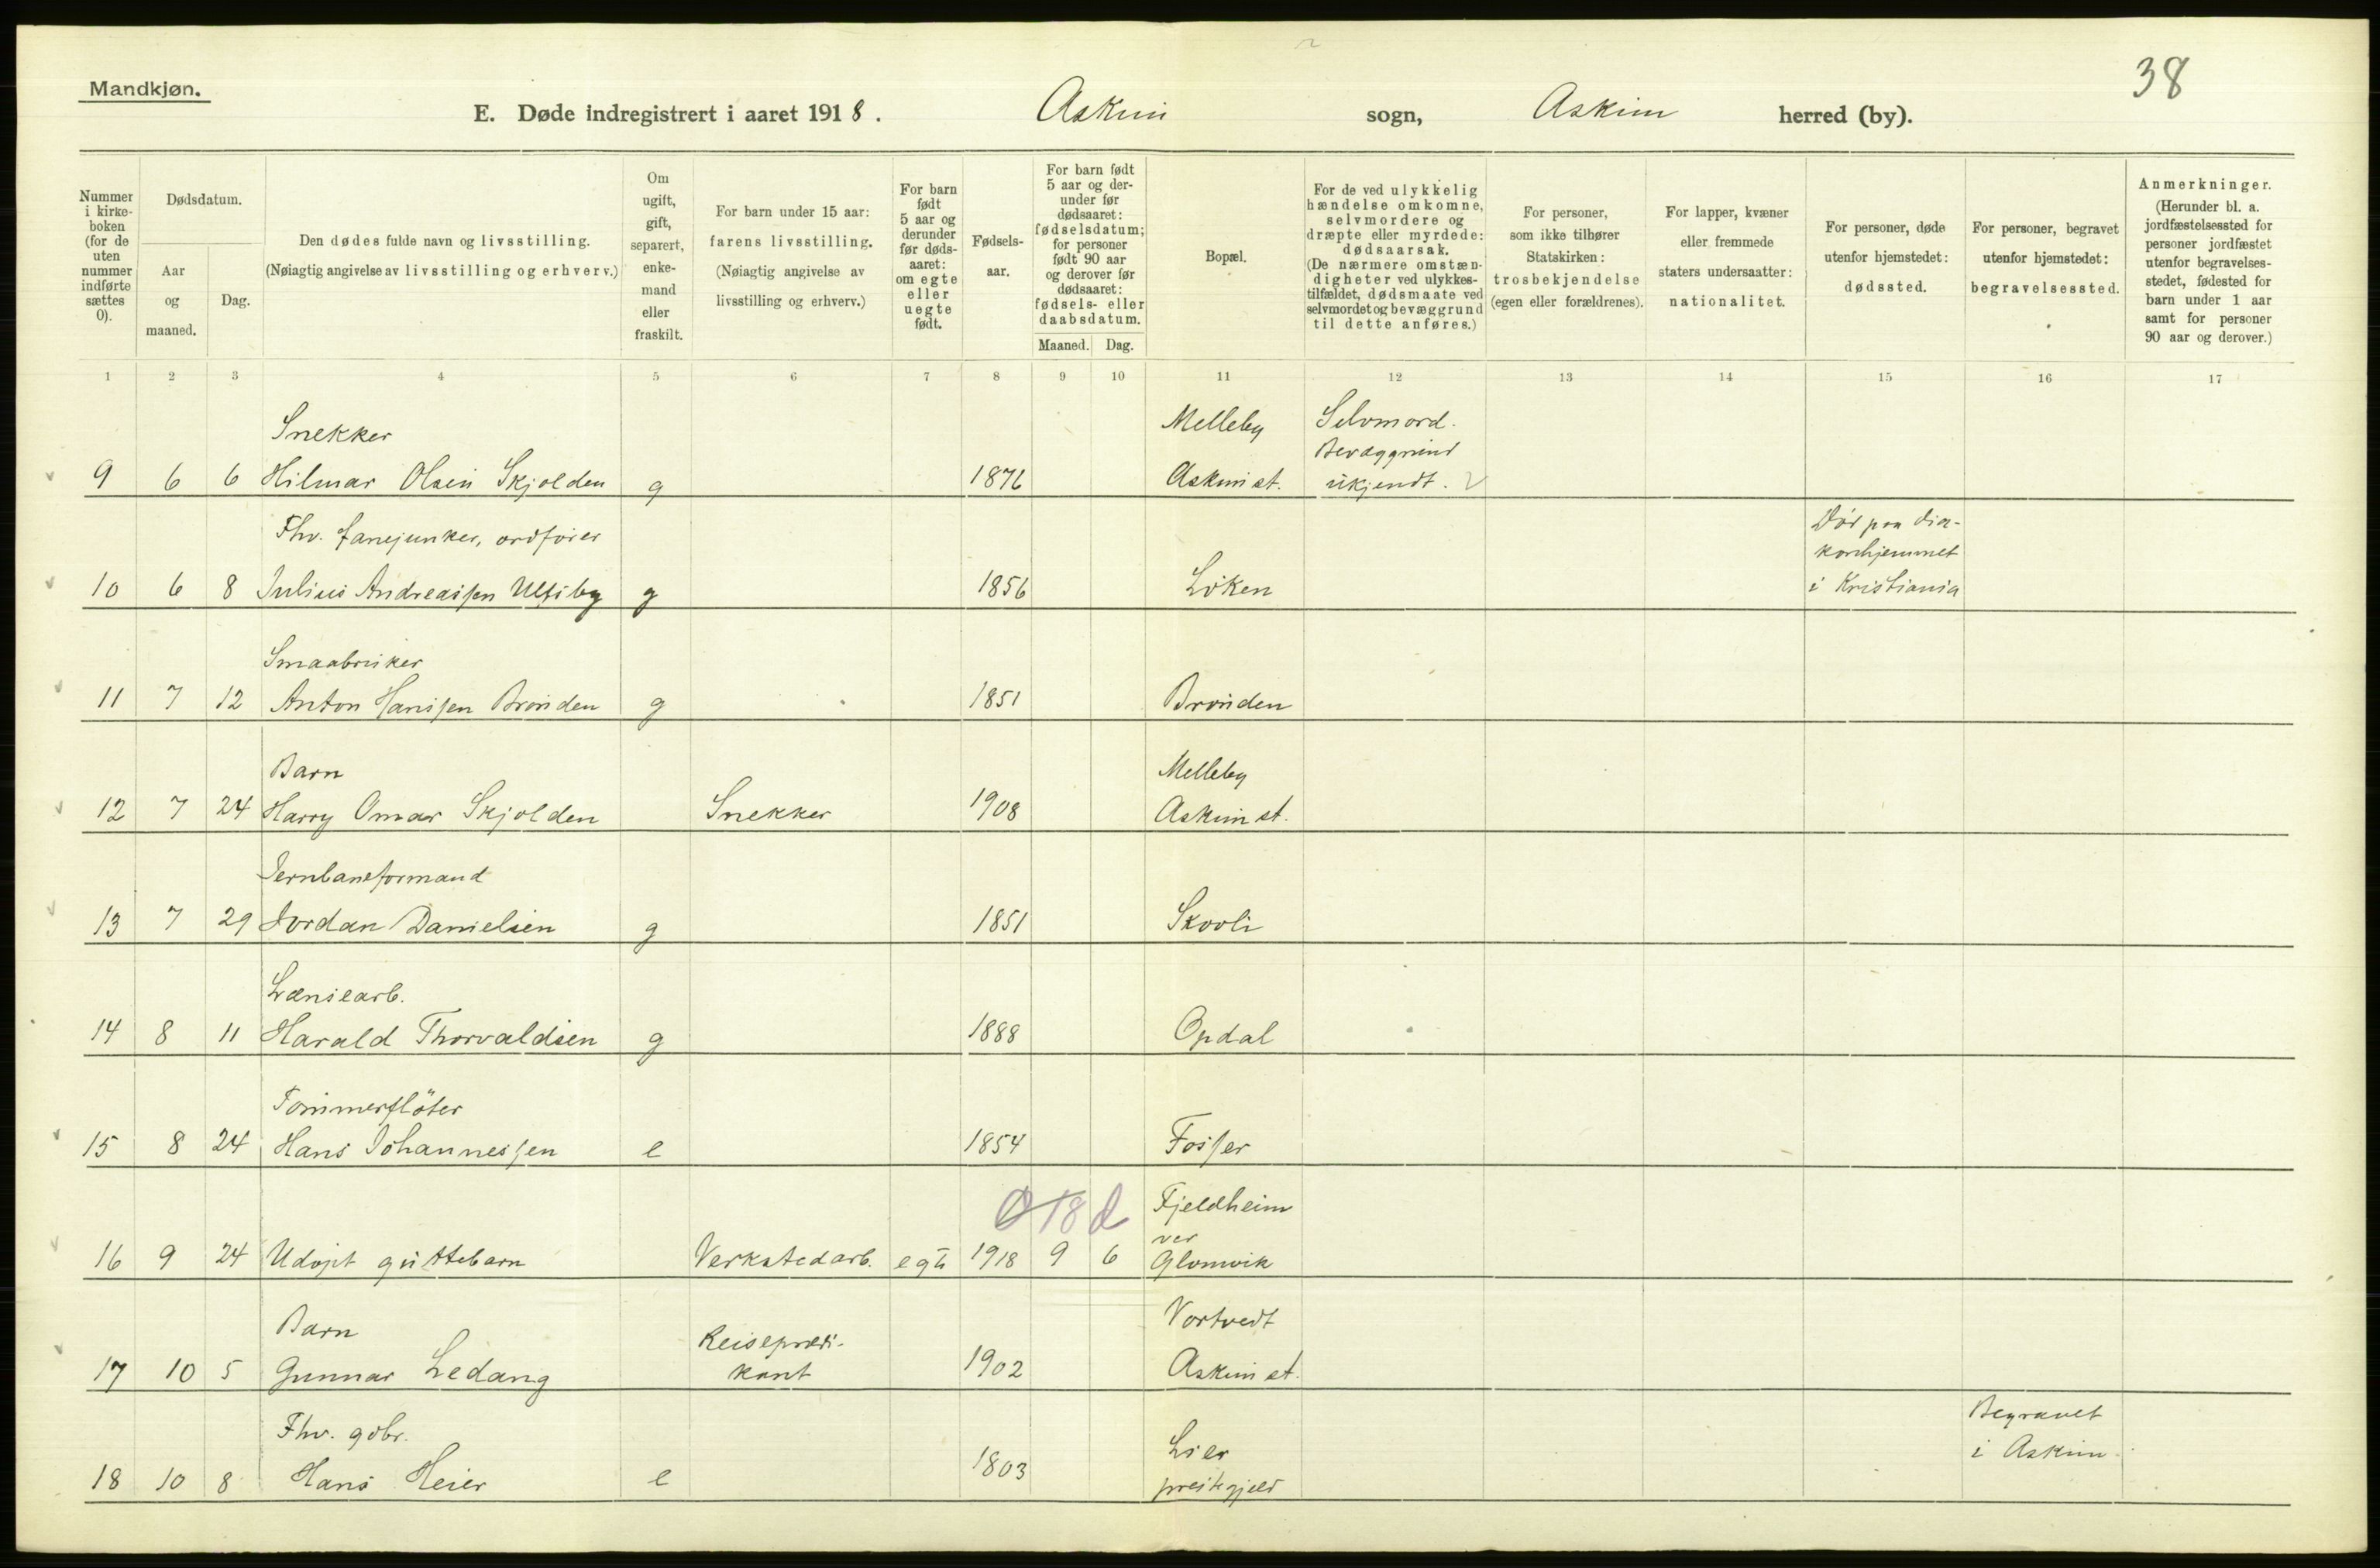 38
Mandkjøn.
E. Døde indregistrert i aaret 1918. Askim sogn, Askim herred (by).
Nummer i kirkeboken (for de uten nummer indførte sættes 0).
Dødsdatum.
Aar og maaned.
Dag.
Den dødes fulde navn og livsstilling.
(Nøiagtig angivelse av livsstilling og erhverv.)
Om ugift, gift, separert, enkemand eller fraskilt.
For barn under 15 aar:
farens livsstilling.
(Nøiagtig angivelse av
livsstilling og erhverv.)
For barn født 5 aar og derunder før dødsaaret: om egte eller uegte født.
Fødselsaar.
For barn født 5 aar og derunder før dødsaaret: fødselsdatum; for personer født 90 aar og derover før dødsaaret: fødsels- eller daabsdatum.
Maaned. Dag.
Bopæl.
For de ved ulykkelig hændelse omkomne, selvmordere og dræpte eller myrdede: dødsaarsak.
(De nærmere omstændigheter ved ulykkestilfældet, dødsmaate ved selvmordet og bevæggrund til dette anføres.)
For personer, som ikke tilhører Statskirken: trosbekjendelse (egen eller forældrenes).
For lapper, kvæner eller fremmede staters undersaatter: nationalitet.
For personer, døde utenfor hjemstedet: dødssted.
For personer, begravet utenfor hjemstedet: begravelsessted.
Anmerkninger.
(Herunder bl. a. jordfæstelsessted for personer jordfæstet utenfor begravelsesstedet, fødested for barn under 1 aar samt for personer 90 aar og derover.)
1 2 3 4 5 6 7 8 9 10 11 12 13 14 15 16 17
Snekker Melleby Selvmord.
Bevæggrund
9 6 6 Hilmar Olsen Skjolden g 1876 Askim st. ukjendt.
Fhv. fanejunker, ordfører Død paa dia-
konhjemmet
10 6 8 Julius Andreassen Ulfsby g 1856 Löken i Kristiania
Smaabruker
11 7 12 Anton Hanssen Bronden g 1851 Bronden
Barn Melleby
12 7 24 Harry Omar Skjolden Snekker 1908 Askim st.
Jernbaneformand
13 7 29 Jordan Danielsen g 1851 Skovli
Lænsearb.
14 8 11 Harald Thorvaldsen g 1888 Opdal
Tömmerflöter
15 8 24 Hans Johannessen e 1854 Fosser
018 d Fjeldheim
ver
16 9 24 Udöpt guttebarn Verkstedarb. egte 1918 9 6 Glomvik
Barn Reisepredi- Vortvedt
17 10 5 Gunnar Ledang kant 1902 Askim st.
Fhv. gdbr. Lier Begravet
i Askim
18 10 8 Hans Heier e 1803 prestegjeld